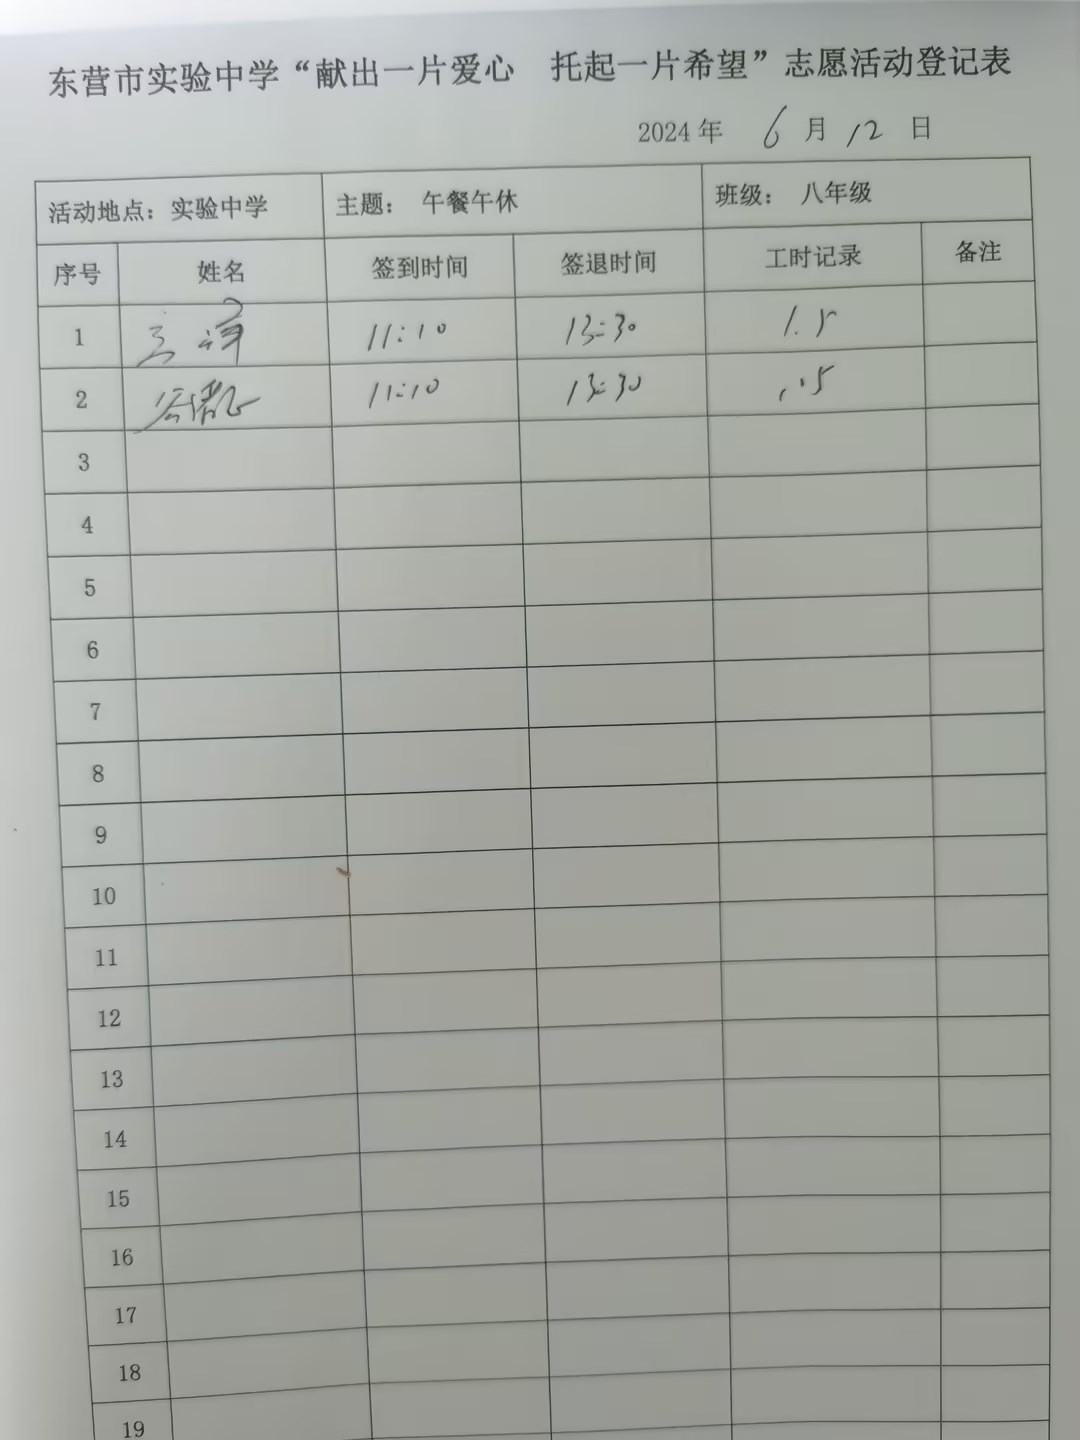 东营市实验中学“献出一片爱心 托起一片希望”志愿活动登记表
2024年 6 月 12 日
活动地点：实验中学 主题： 午餐午休 班级： 八年级
序号 姓名 签到时间 签退时间 工时记录 备注
1 11:10 13:30 1.5
2 11:10 13:30 1.5
3
4
5
6
7
8
9
10
11
12
13
14
15
16
17
18
19